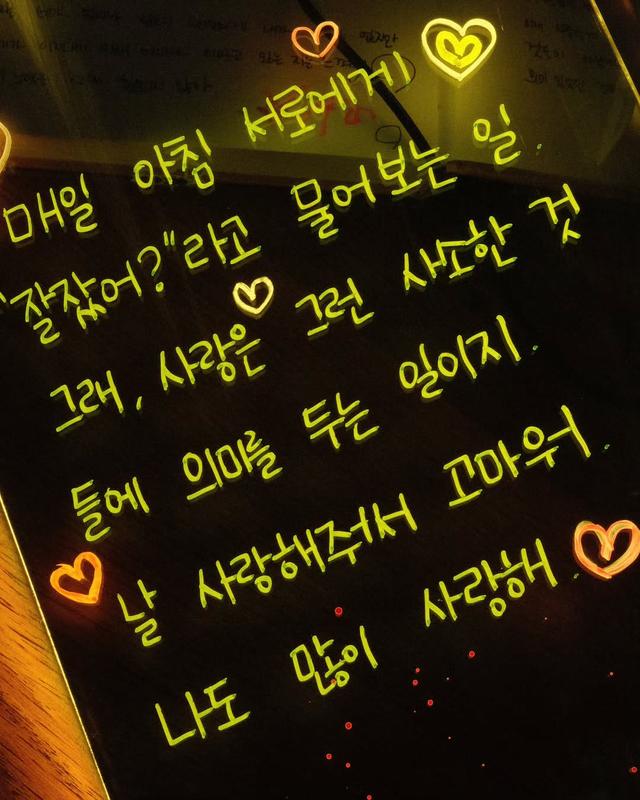 매일 아침 서로에게
"잘잤어?"라고 물어보는 일.
그래, 사랑은 그런 사소한 것
들에 의미를 두는 일이지.
날 사랑해주서 고마우ㅓ.
나도 많이 사랑해.